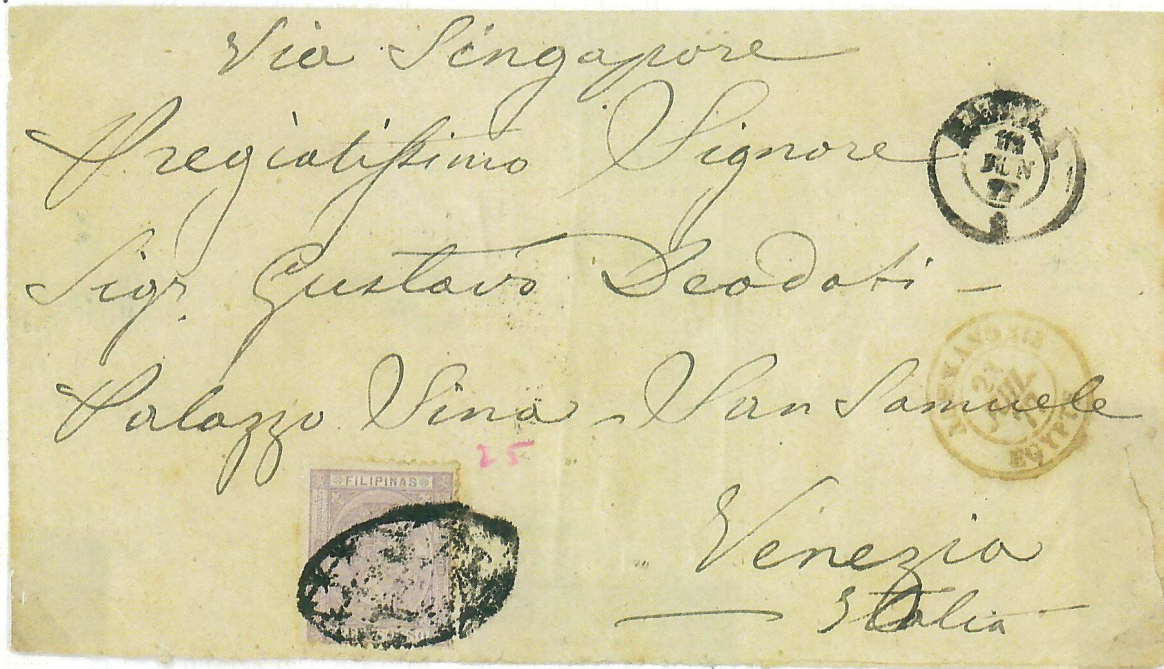 Via Singapore
Pregiatissimo Signore
Sigr. Gustavo Deodati -
Palazzo Sina - San Samuele
Venezia
Italia
25
FILIPINAS
JUN
ALEXANDRIE
EGYPTE